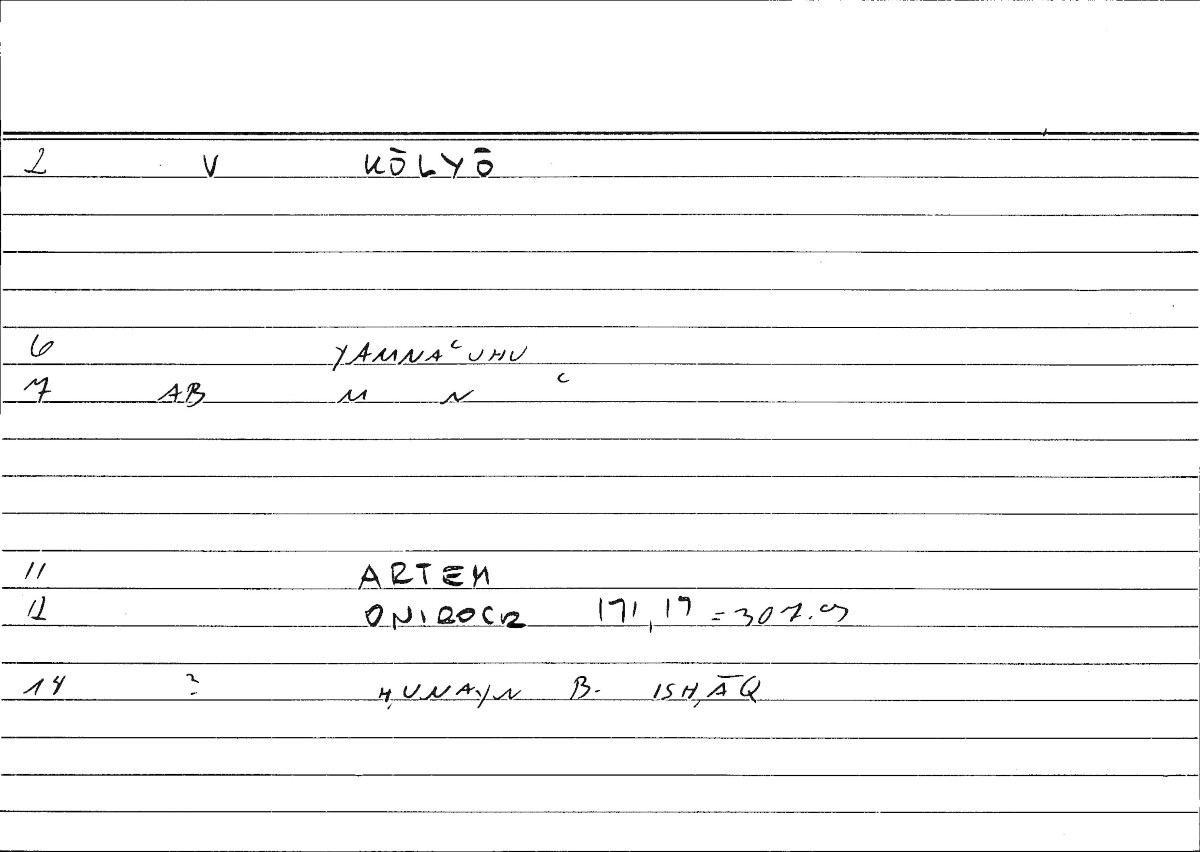 2 V KŌLYŌ
6 YAMNAʿUHU
7 AB M N ʿ
11 ARTEM
12 ONIROCR 171,17 = 307.9
14 ? H,UNAYN B. ISH,ĀQ